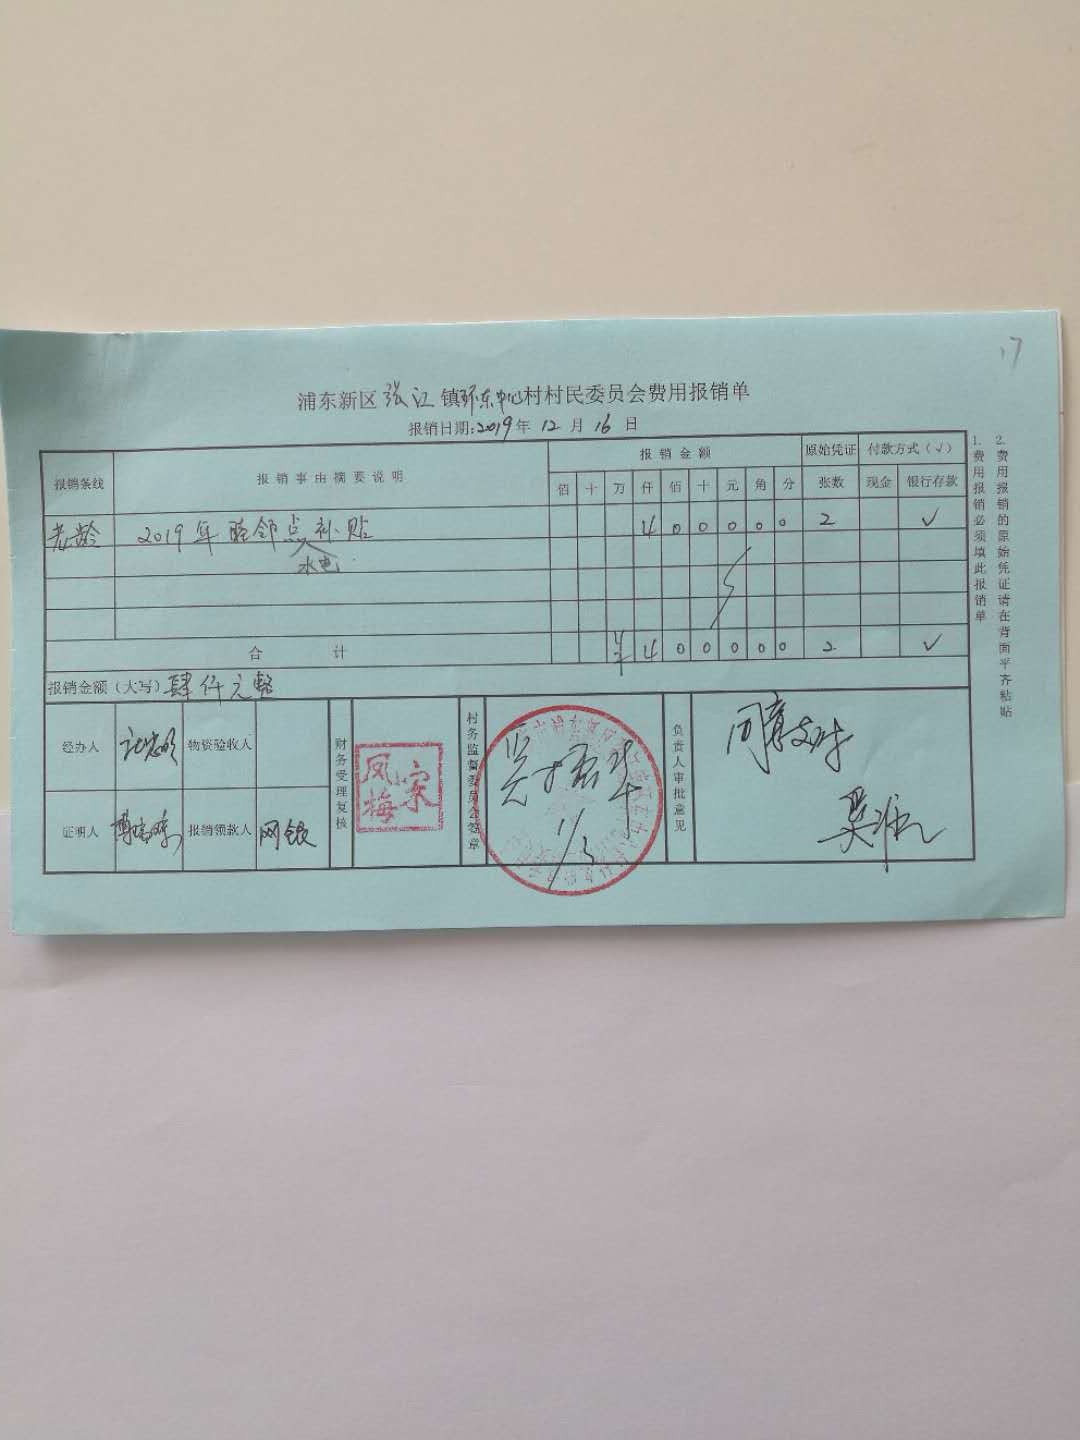 17
浦东新区张江镇环东中心村村民委员会费用报销单
报销日期:2019年12月16日
报销条线 报销事由摘要说明 报销金额 原始凭证 付款方式(√)
佰 十 万 仟 佰 十 元 角 分 张数 现金 银行存款
老龄 2019年睦邻点补贴 4 0 0 0 0 0 2 √
水电
合计 ¥ 4 0 0 0 0 0 2 √
报销金额(大写)肆仟元整
经办人 物资验收人 财务受理复核 村务监督委员会签章 负责人审批意见 同意支付
凤梅 宋
1/3
证明人 报销领款人 网银
1.费用报销必须填此报销单
2.费用报销的原始凭证请在背面平齐粘贴